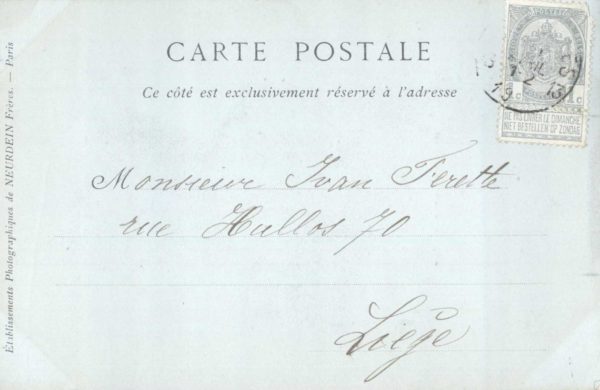 CARTE POSTALE
Ce côté est exclusivement réservé à l'adresse
Monsieur Ivan Ferette
rue Hullos 70
Liège
Établissements Photographiques de NEURDEIN Frères. — Paris
1c
NE PAS LIVRER LE DIMANCHE
NIET BESTELLEN OP ZONDAG